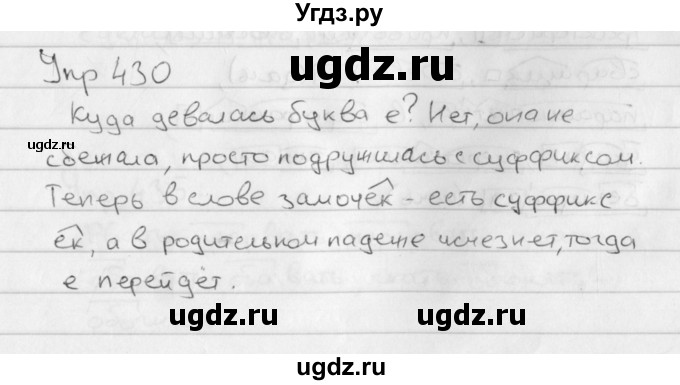 Угдз.ру
Упр 430
ugdz.ru
Куда девалась буква е? Нет, она не
ugdz.ru
сбежала, просто подружилась с суффиксом.
Теперь в слове замочек - есть суффикс
ек, а в родительном падеже исчезнет, тогда
е перейдёт.
ugdz.ru ugdz.ru
ugdz.ru